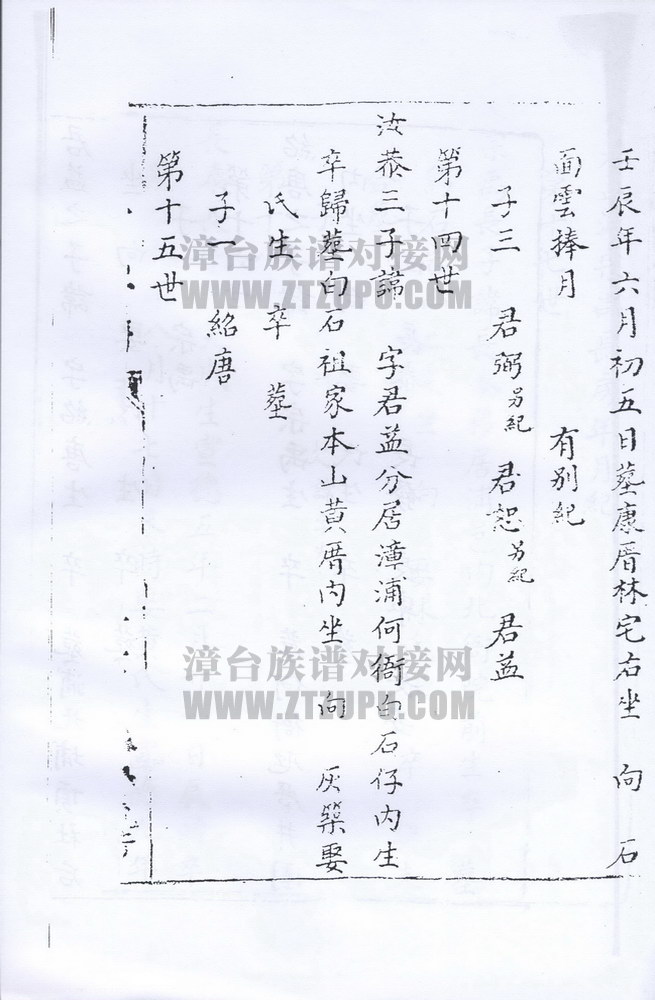 壬辰年六月初五日墓康厝林宅右坐 向 石
面雲捧月 有别紀
子三 君弼另紀 君恕另紀 君益
第十四世
汝恭三子諱 字君益分居漳浦何衙白石仔内生
卒歸墓白石祖家本山黄厝内坐 向 灰築娶
氏生 卒 墓
子一 紹唐
第十五世
漳台族谱对接网
WWW.ZTZUPU.COM
漳台族谱对接网
WWW.ZTZUPU.COM